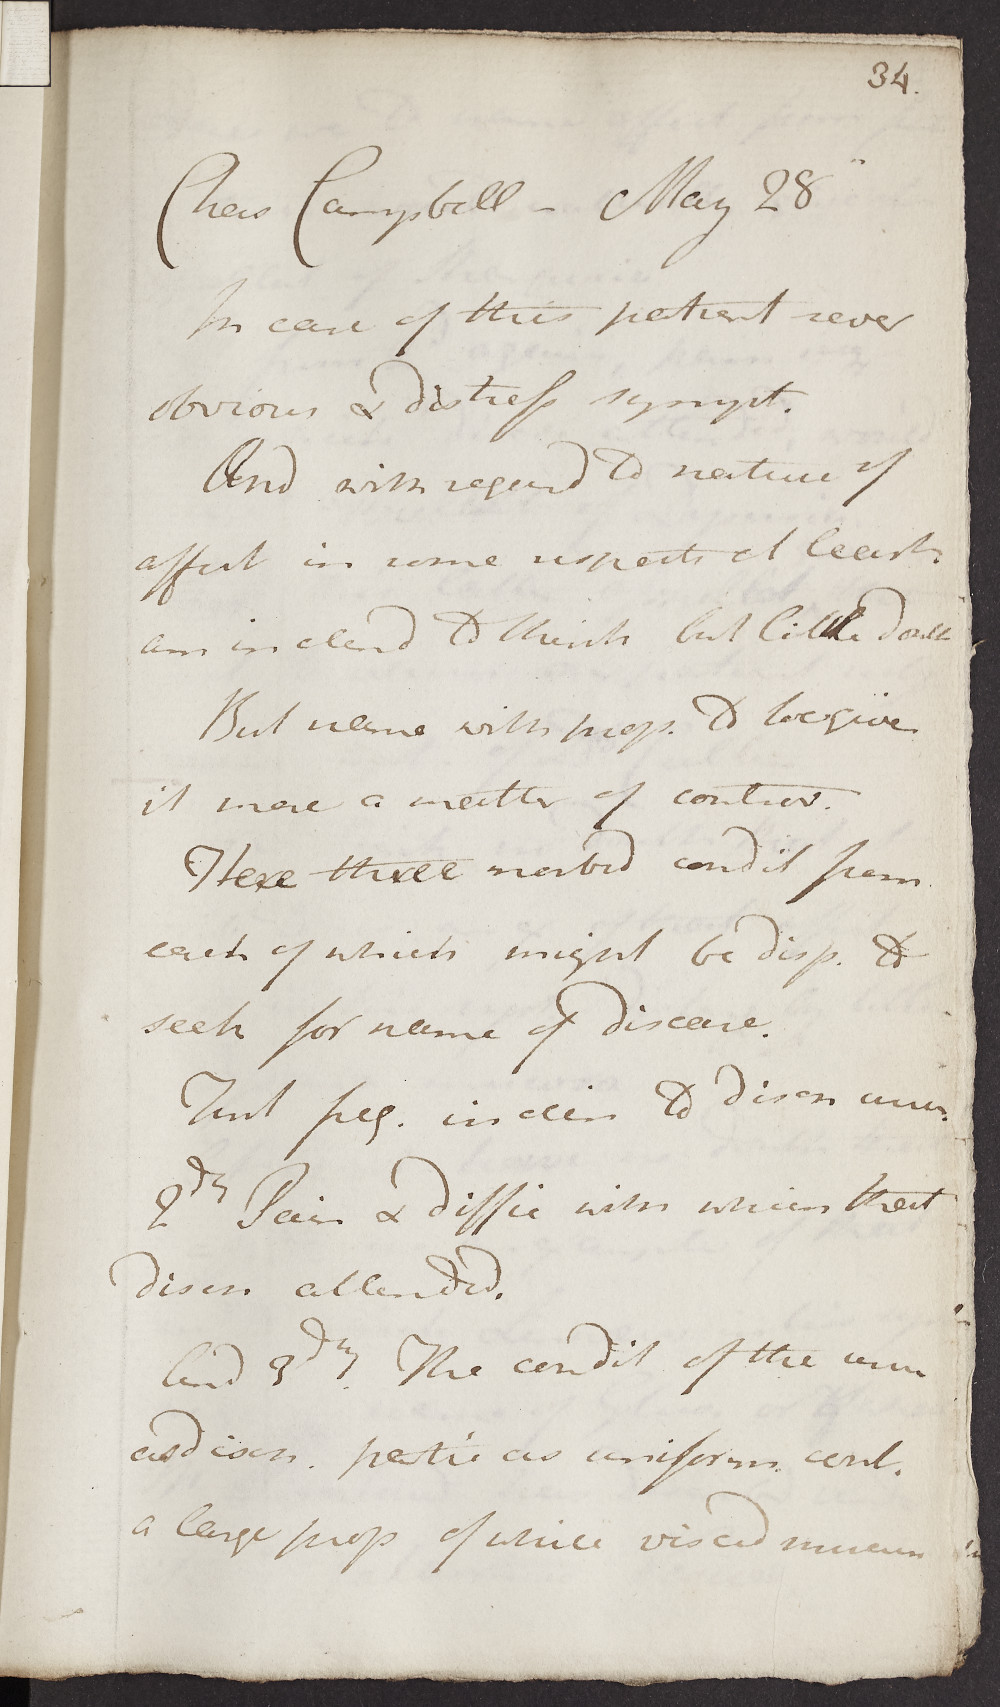 34.
Chas Campbell - May 28"
In case of this patient sever
obvious & distress sympt.
And with regard to nature of
affect in some respects at least
am inclend to think but little doubt
But name with prop. to be give
it more a matter of controv.
Here three morbid condit from
each of which might be disp. to
seek for name of disease.
1mt freq. inclin to disch urin.
2dly Pain & diffic with which that
disch attended.
And 3dly. The condit of the urin
as disch. partic as uniform cont.
a large prop of white viscid mucus